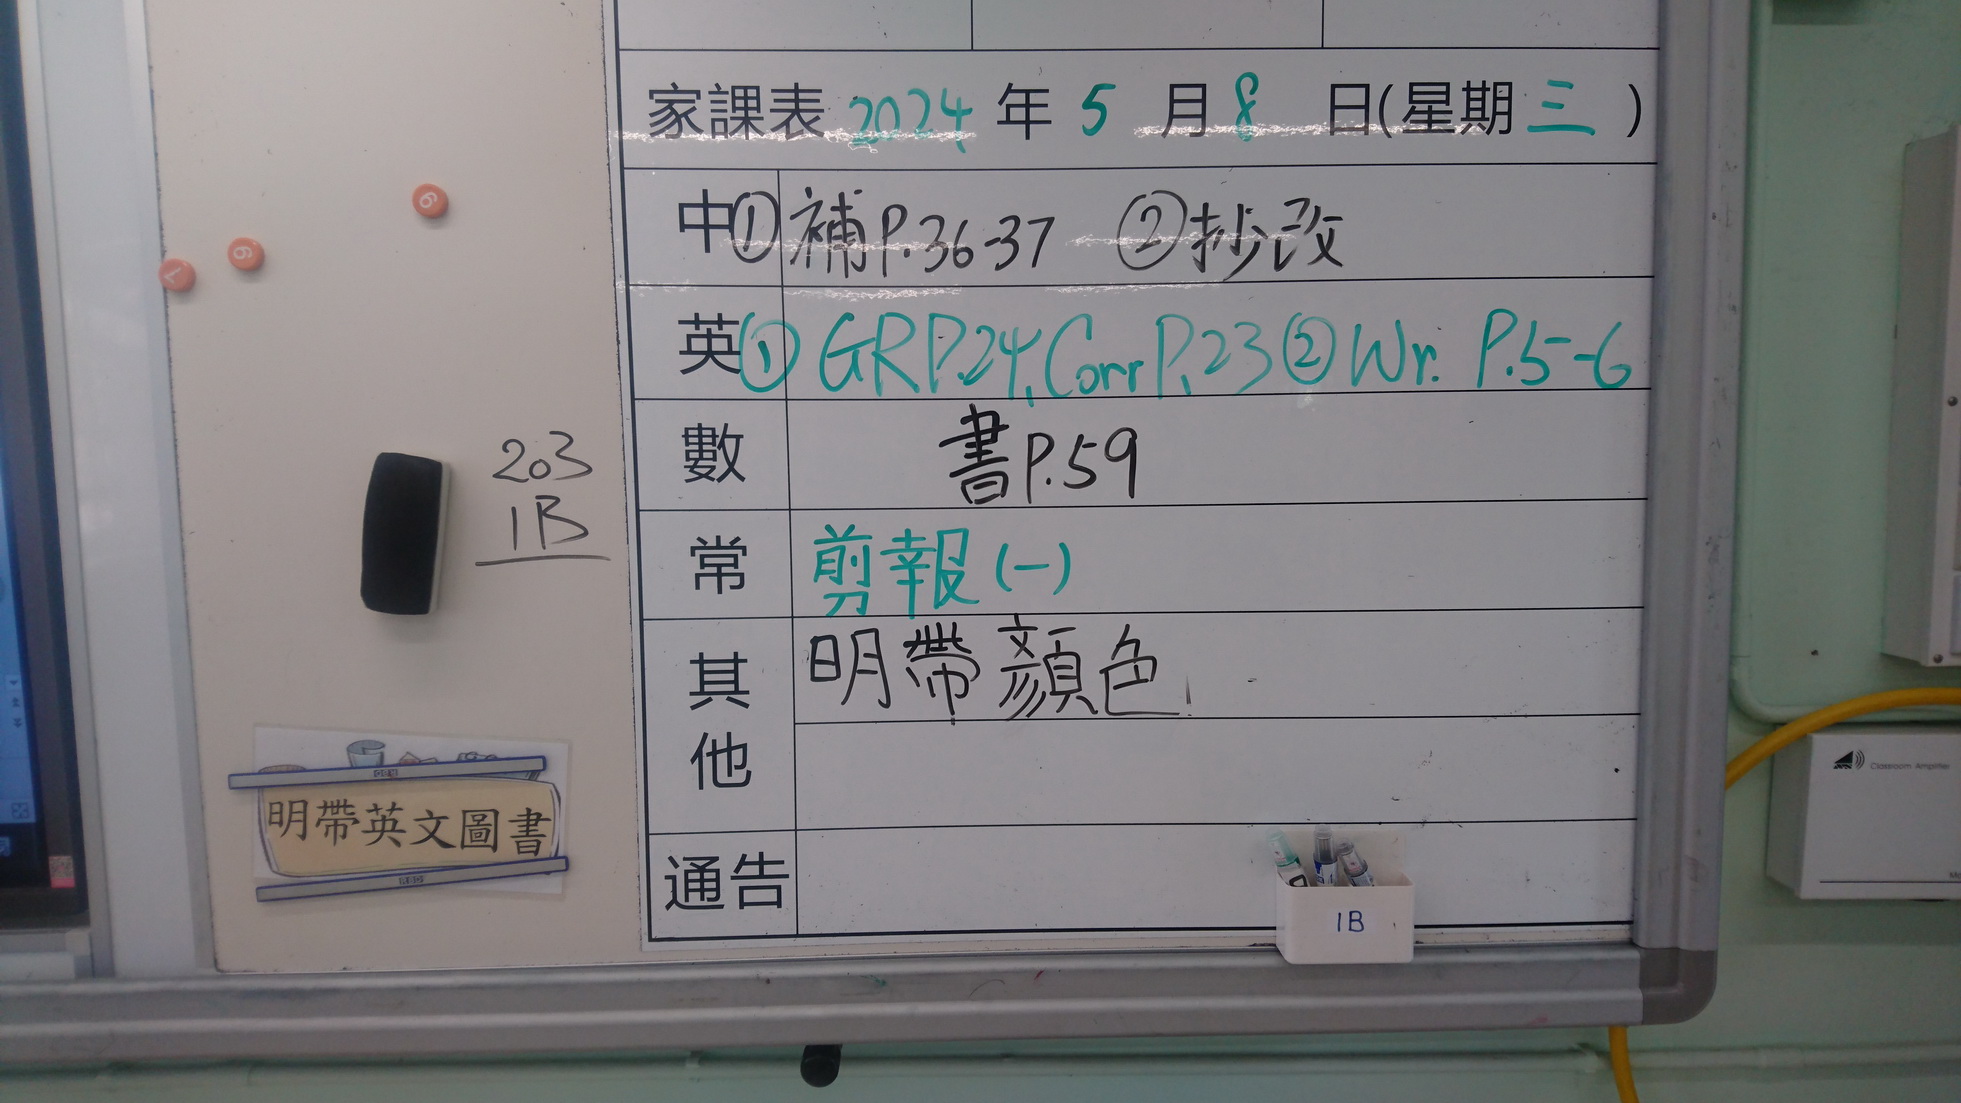 家課表 2024 年 5 月 8 日(星期 三 )
中 ① 補P.36-37 ② 抄改
英 ① GR P.24, Corr P.23 ② Wr. P.5-6
數 書P.59
常 剪報(一)
其他 明帶顏色
通告
203
1B
明帶英文圖書
1B
Classroom Amplifier
6
6
7